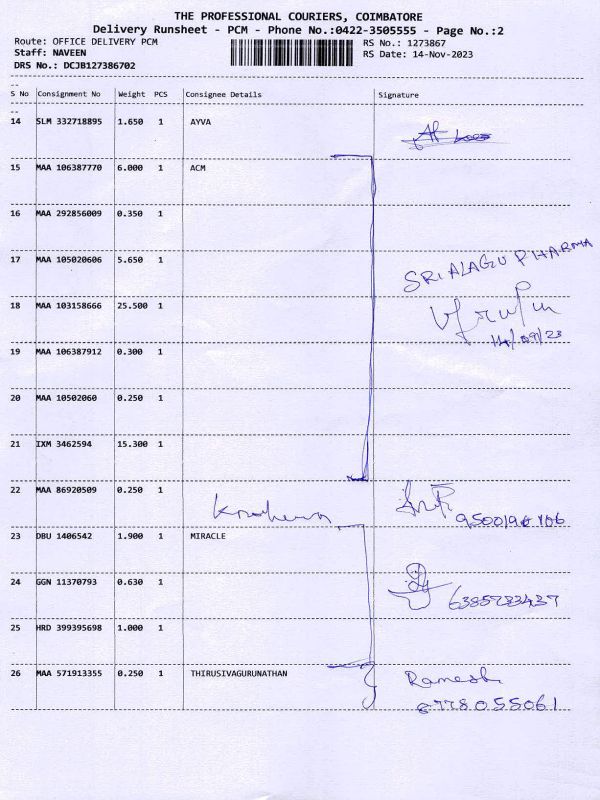 THE PROFESSIONAL COURIERS, COIMBATORE
Delivery Runsheet - PCM - Phone No.:0422-3505555 - Page No.:2
Route: OFFICE DELIVERY PCM RS No.: 1273867
Staff: NAVEEN RS Date: 14-Nov-2023
DRS No.: DCJB127386702
--
S No Consignment No Weight PCS Consignee Details Signature
--
14 SLM 332718895 1.650 1 AYVA
15 MAA 106387770 6.000 1 ACM
16 MAA 292856009 0.350 1
17 MAA 105020606 5.650 1
SRI ALAGU PHARMA
18 MAA 103158666 25.500 1
19 MAA 106387912 0.300 1
20 MAA 10502060 0.250 1
21 IXM 3462594 15.300 1
22 MAA 86920509 0.250 1
23 DBU 1406542 1.900 1 MIRACLE
24 GGN 11370793 0.630 1
6385783437
25 HRD 399395698 1.000 1
26 MAA 571913355 0.250 1 THIRUSIVAGURUNATHAN Ramesh
8778055061